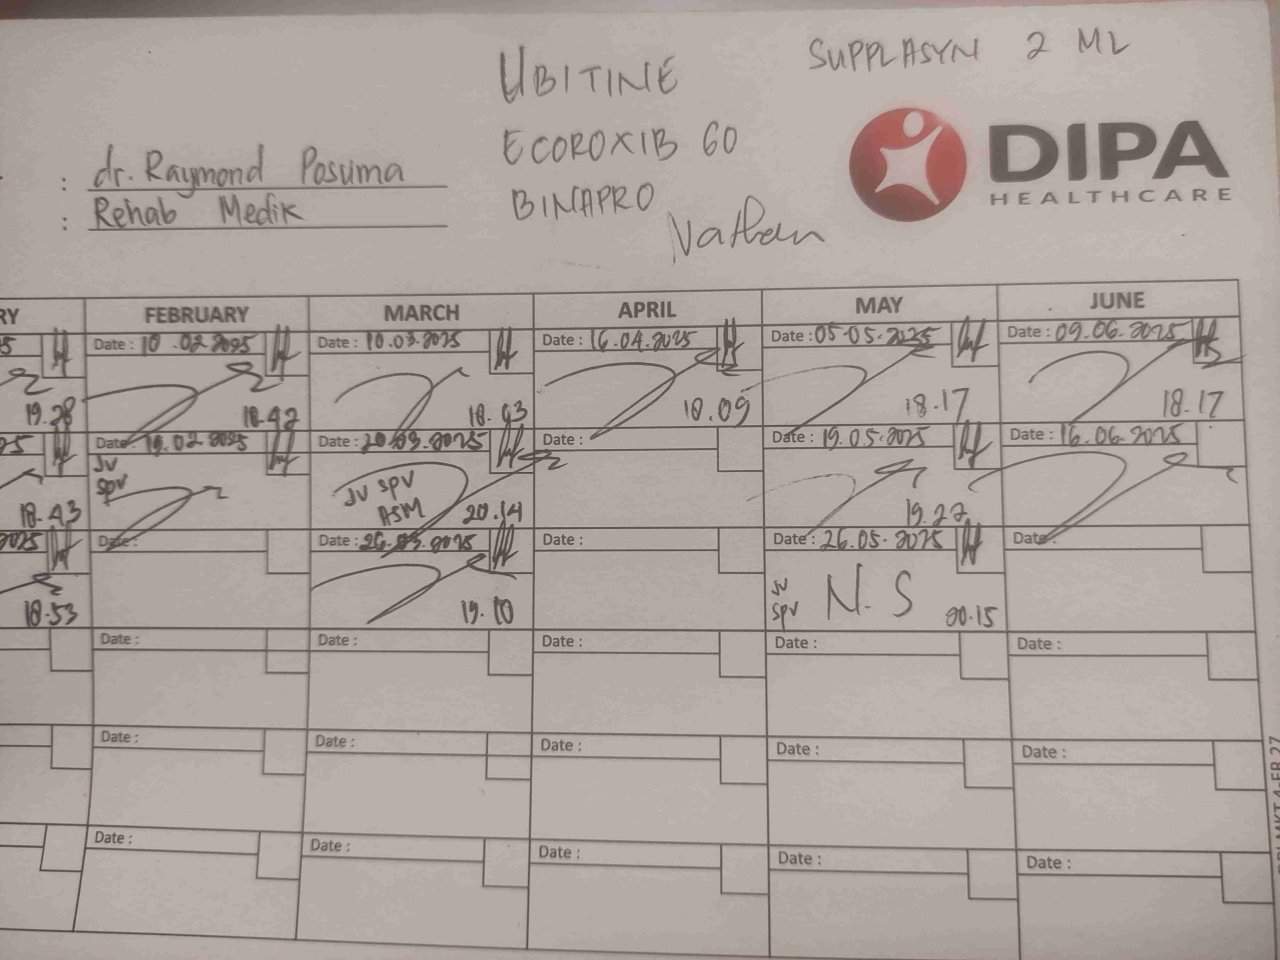 UBITINE
SUPPLASYN 2 ML
ECOROXIB 60
BINAPRO
Nathan
: dr. Raymond Posuma
: Rehab Medik
DIPA
HEALTHCARE
RY FEBRUARY MARCH APRIL MAY JUNE
Date : 10.02.2025 Date : 10.03.2025 Date : 16.04.2025 Date : 05.05.2025 Date : 09.06.2025
19.28 18.42 18.43 18.09 18.17 18.17
25 Date 19.02.2025 Date : 20.03.2025 Date : Date : 19.05.2025 Date : 16.06.2025
JV
SPV
JV SPV
ASM
18.43 20.14 19.22
2025 Date : Date : 26.03.2025 Date : Date : 26.05.2025 Date :
JV
SPV
N.S
18.53 19.10 20.15
Date : Date : Date : Date : Date :
Date : Date : Date : Date : Date :
Date : Date : Date : Date : Date :